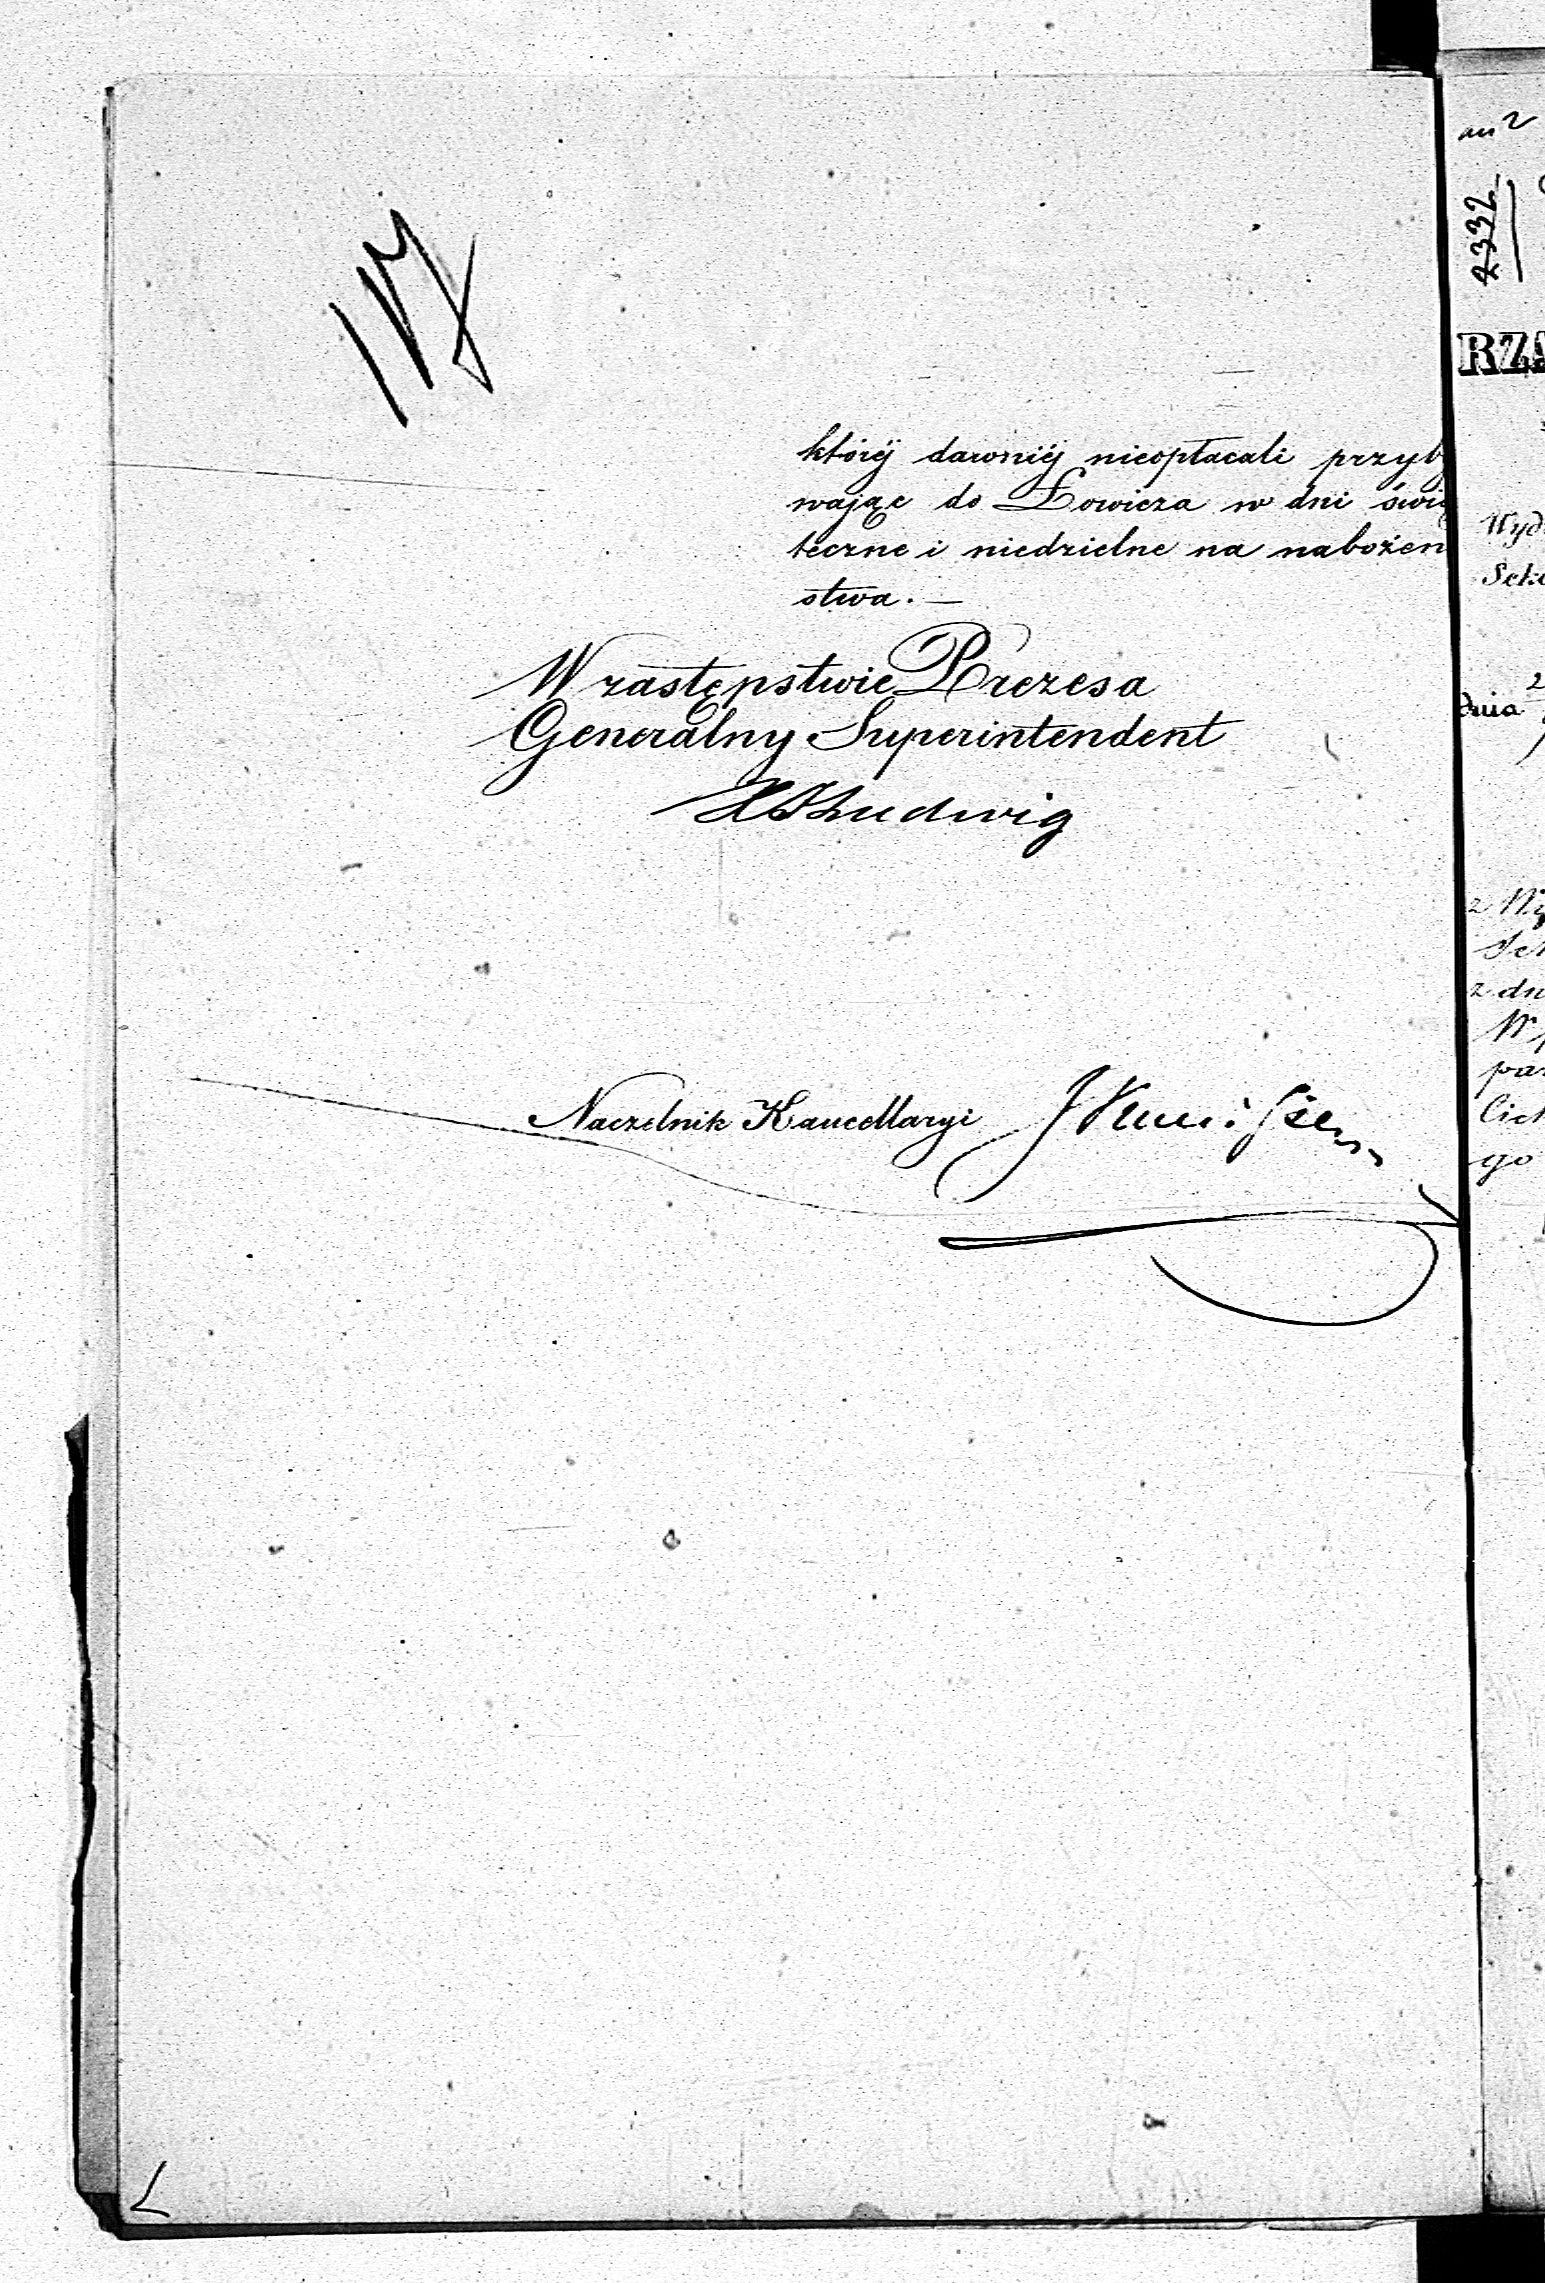 któréj dawniéj nieopłacali przyby
wając do Łowicza w dni świą
teczne i niedzielne na nabożeń
stwa. —
W zastępstwie Prezesa
Generalny Superintendent
Ludwig
Naczelnik Kancellaryi
an 2
2332
RZĄ
Wyd
Sek
dnia 2
z Wy
Sek
z dn
W p
par
Cich
go